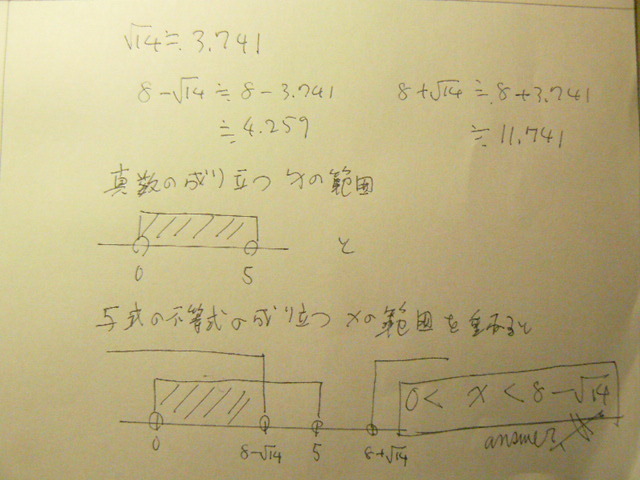 √14≒3.741
8-√14≒8-3.741
≒4.259
8+√14≒8+3.741
≒11.741
真数の成り立つxの範囲
0 5 と
与式の不等式の成り立つxの範囲を重ねると
0 8-√14 5 8+√14
0< x <8-√14
answer